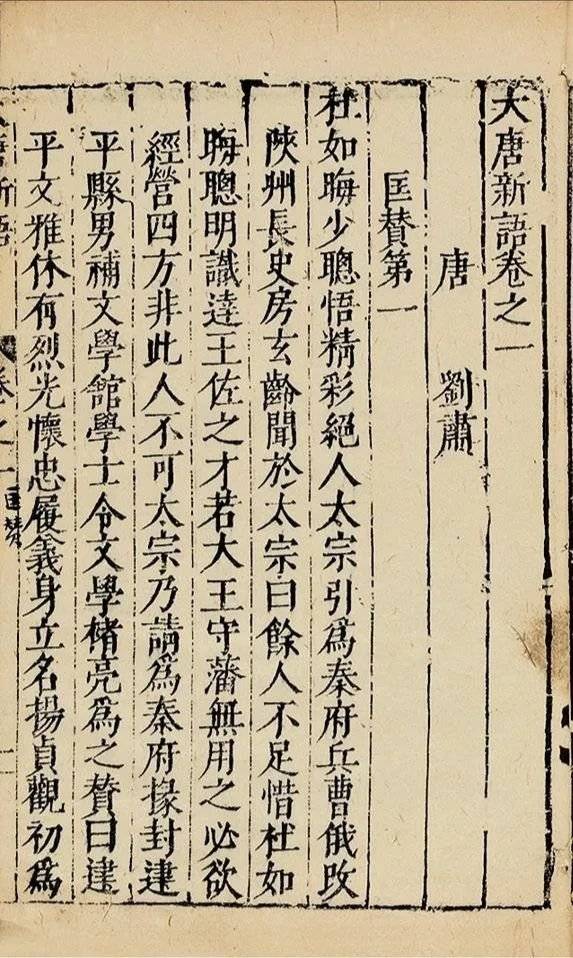 大唐新語卷之一
唐 劉肅
匡賛第一
杜如晦少聰悟精彩絕人太宗引爲秦府兵曹俄改
陝州長史房玄齡聞於太宗曰餘人不足惜杜如
晦聰明識達王佐之才若大王守藩無用之必欲
經營四方非此人不可太宗乃請爲秦府掾封建
平縣男補文學舘學士令文學褚亮爲之賛曰建
平文雅休有烈光懷忠履義身立名揚貞觀初爲
唐新語 卷之一 匡賛 一